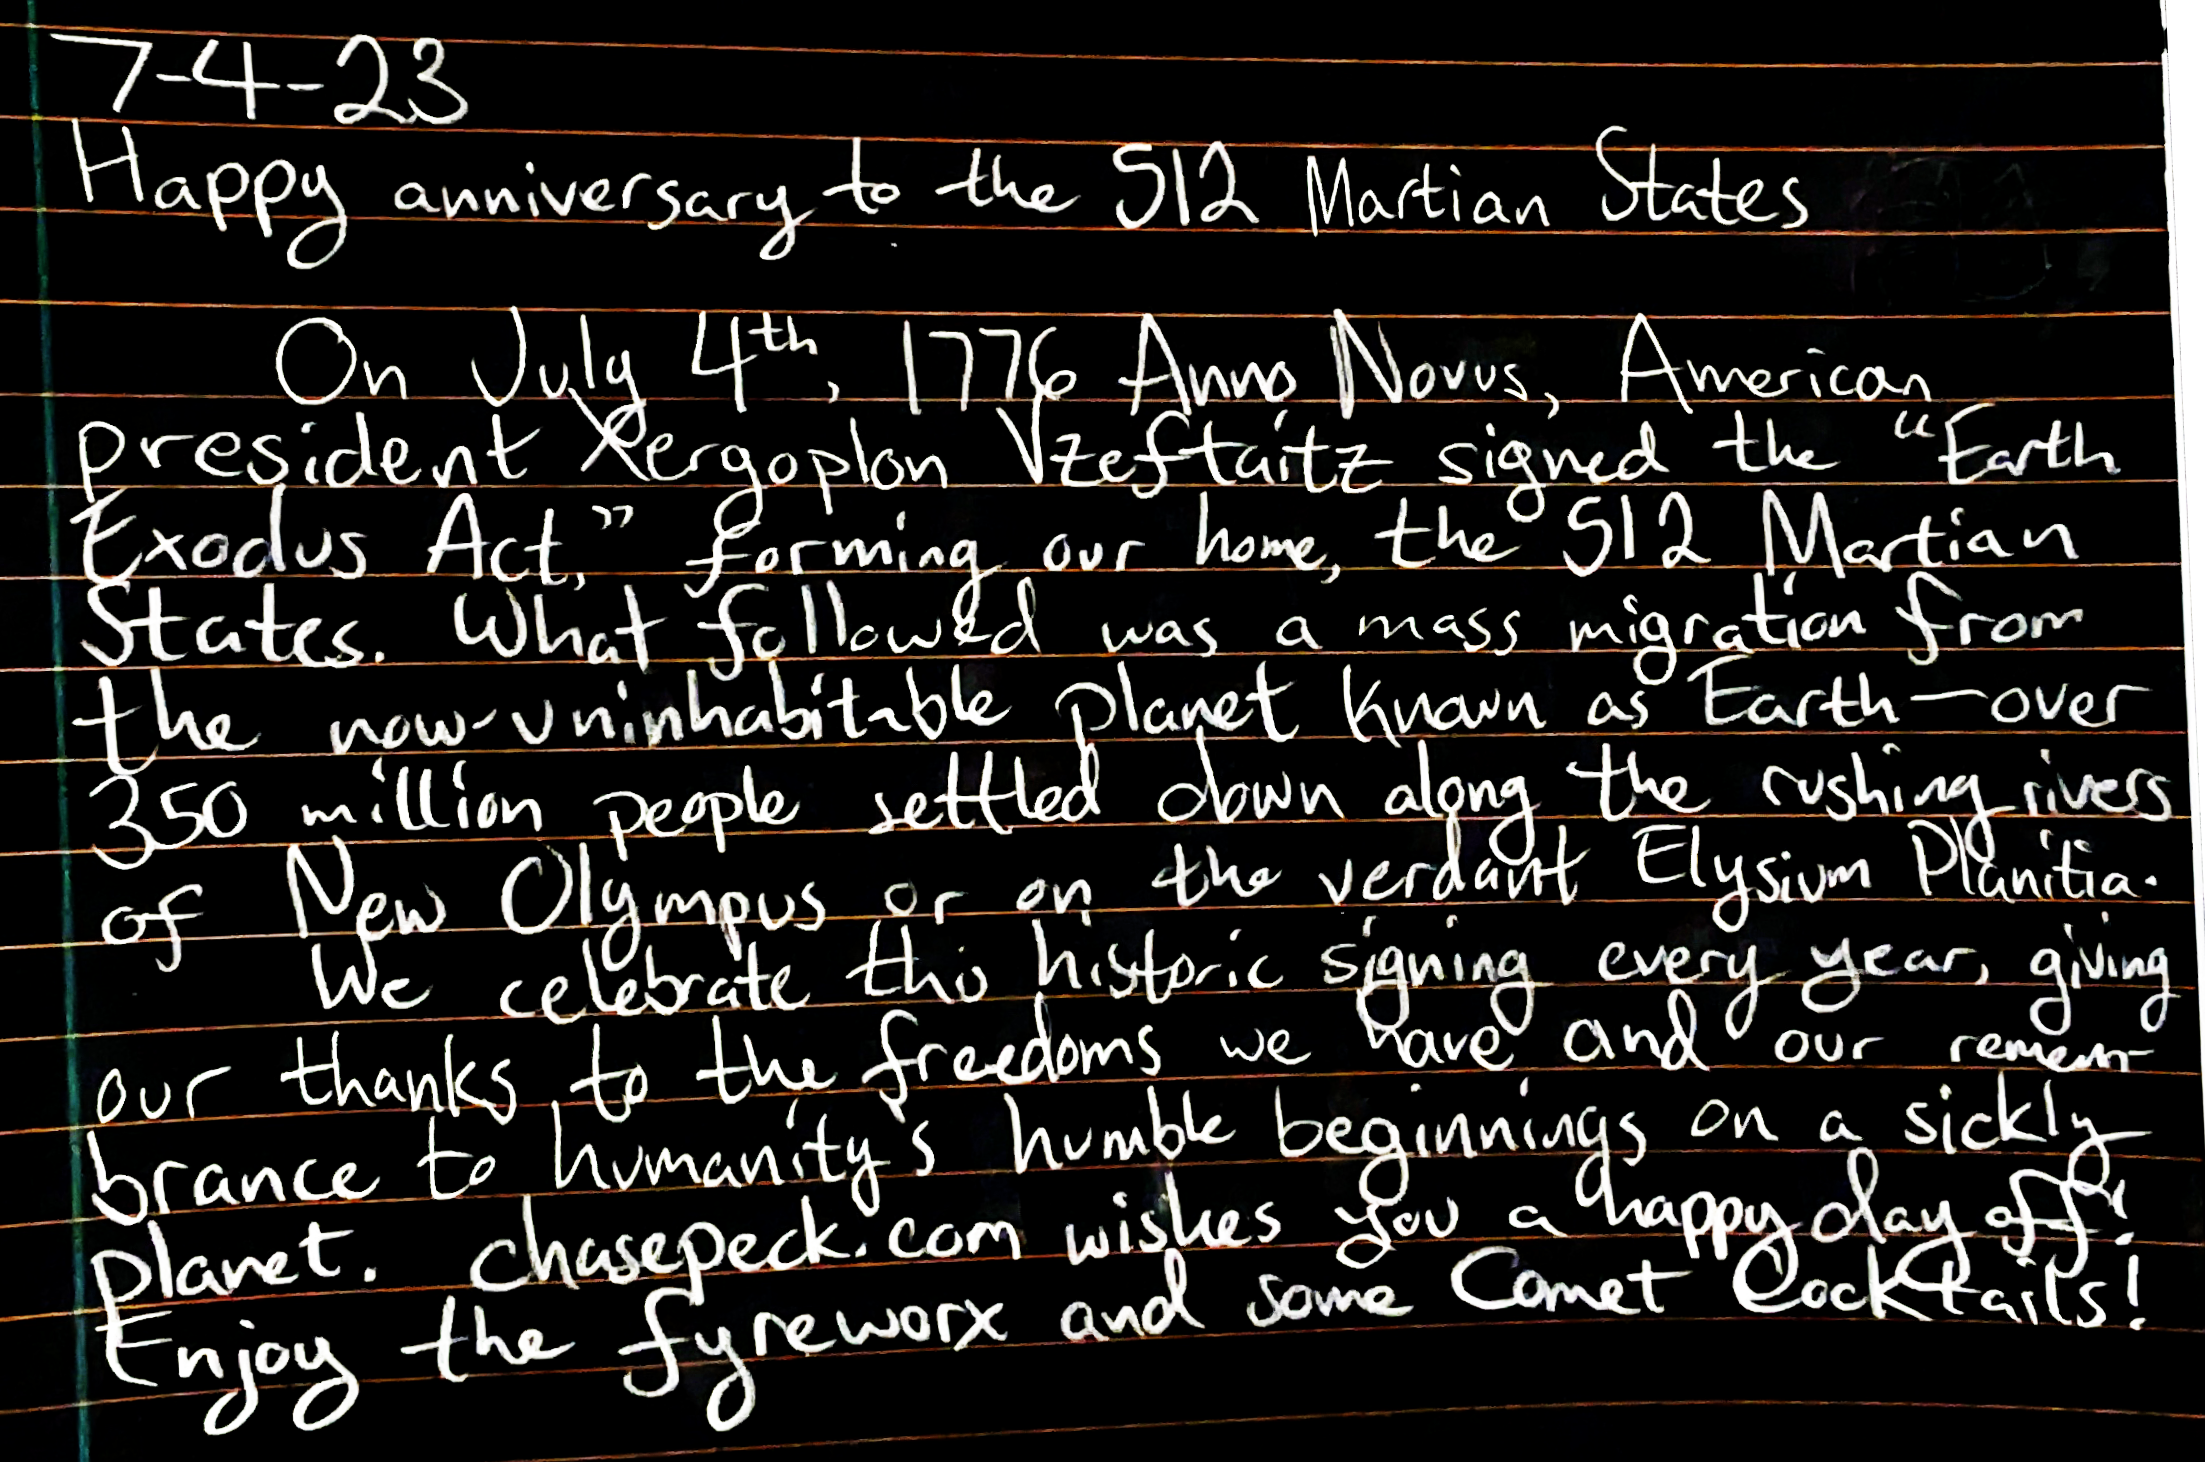 7-4-23
Happy anniversary to the 512 Martian States
On July 4th, 1776 Anno Novus, American
president Xergoplon Vzeftaitz signed the “Earth
Exodus Act,” forming our home, the 512 Martian
States. What followed was a mass migration from
the now-uninhabitable planet known as Earth—over
350 million people settled down along the rushing rivers
of New Olympus or on the verdant Elysium Planitia.
We celebrate this historic signing every year, giving
our thanks to the freedoms we have and our remem-
brance to humanity's humble beginnings on a sickly
planet. chasepeck.com wishes you a happy day off!
Enjoy the fyreworx and some Comet Cocktails!